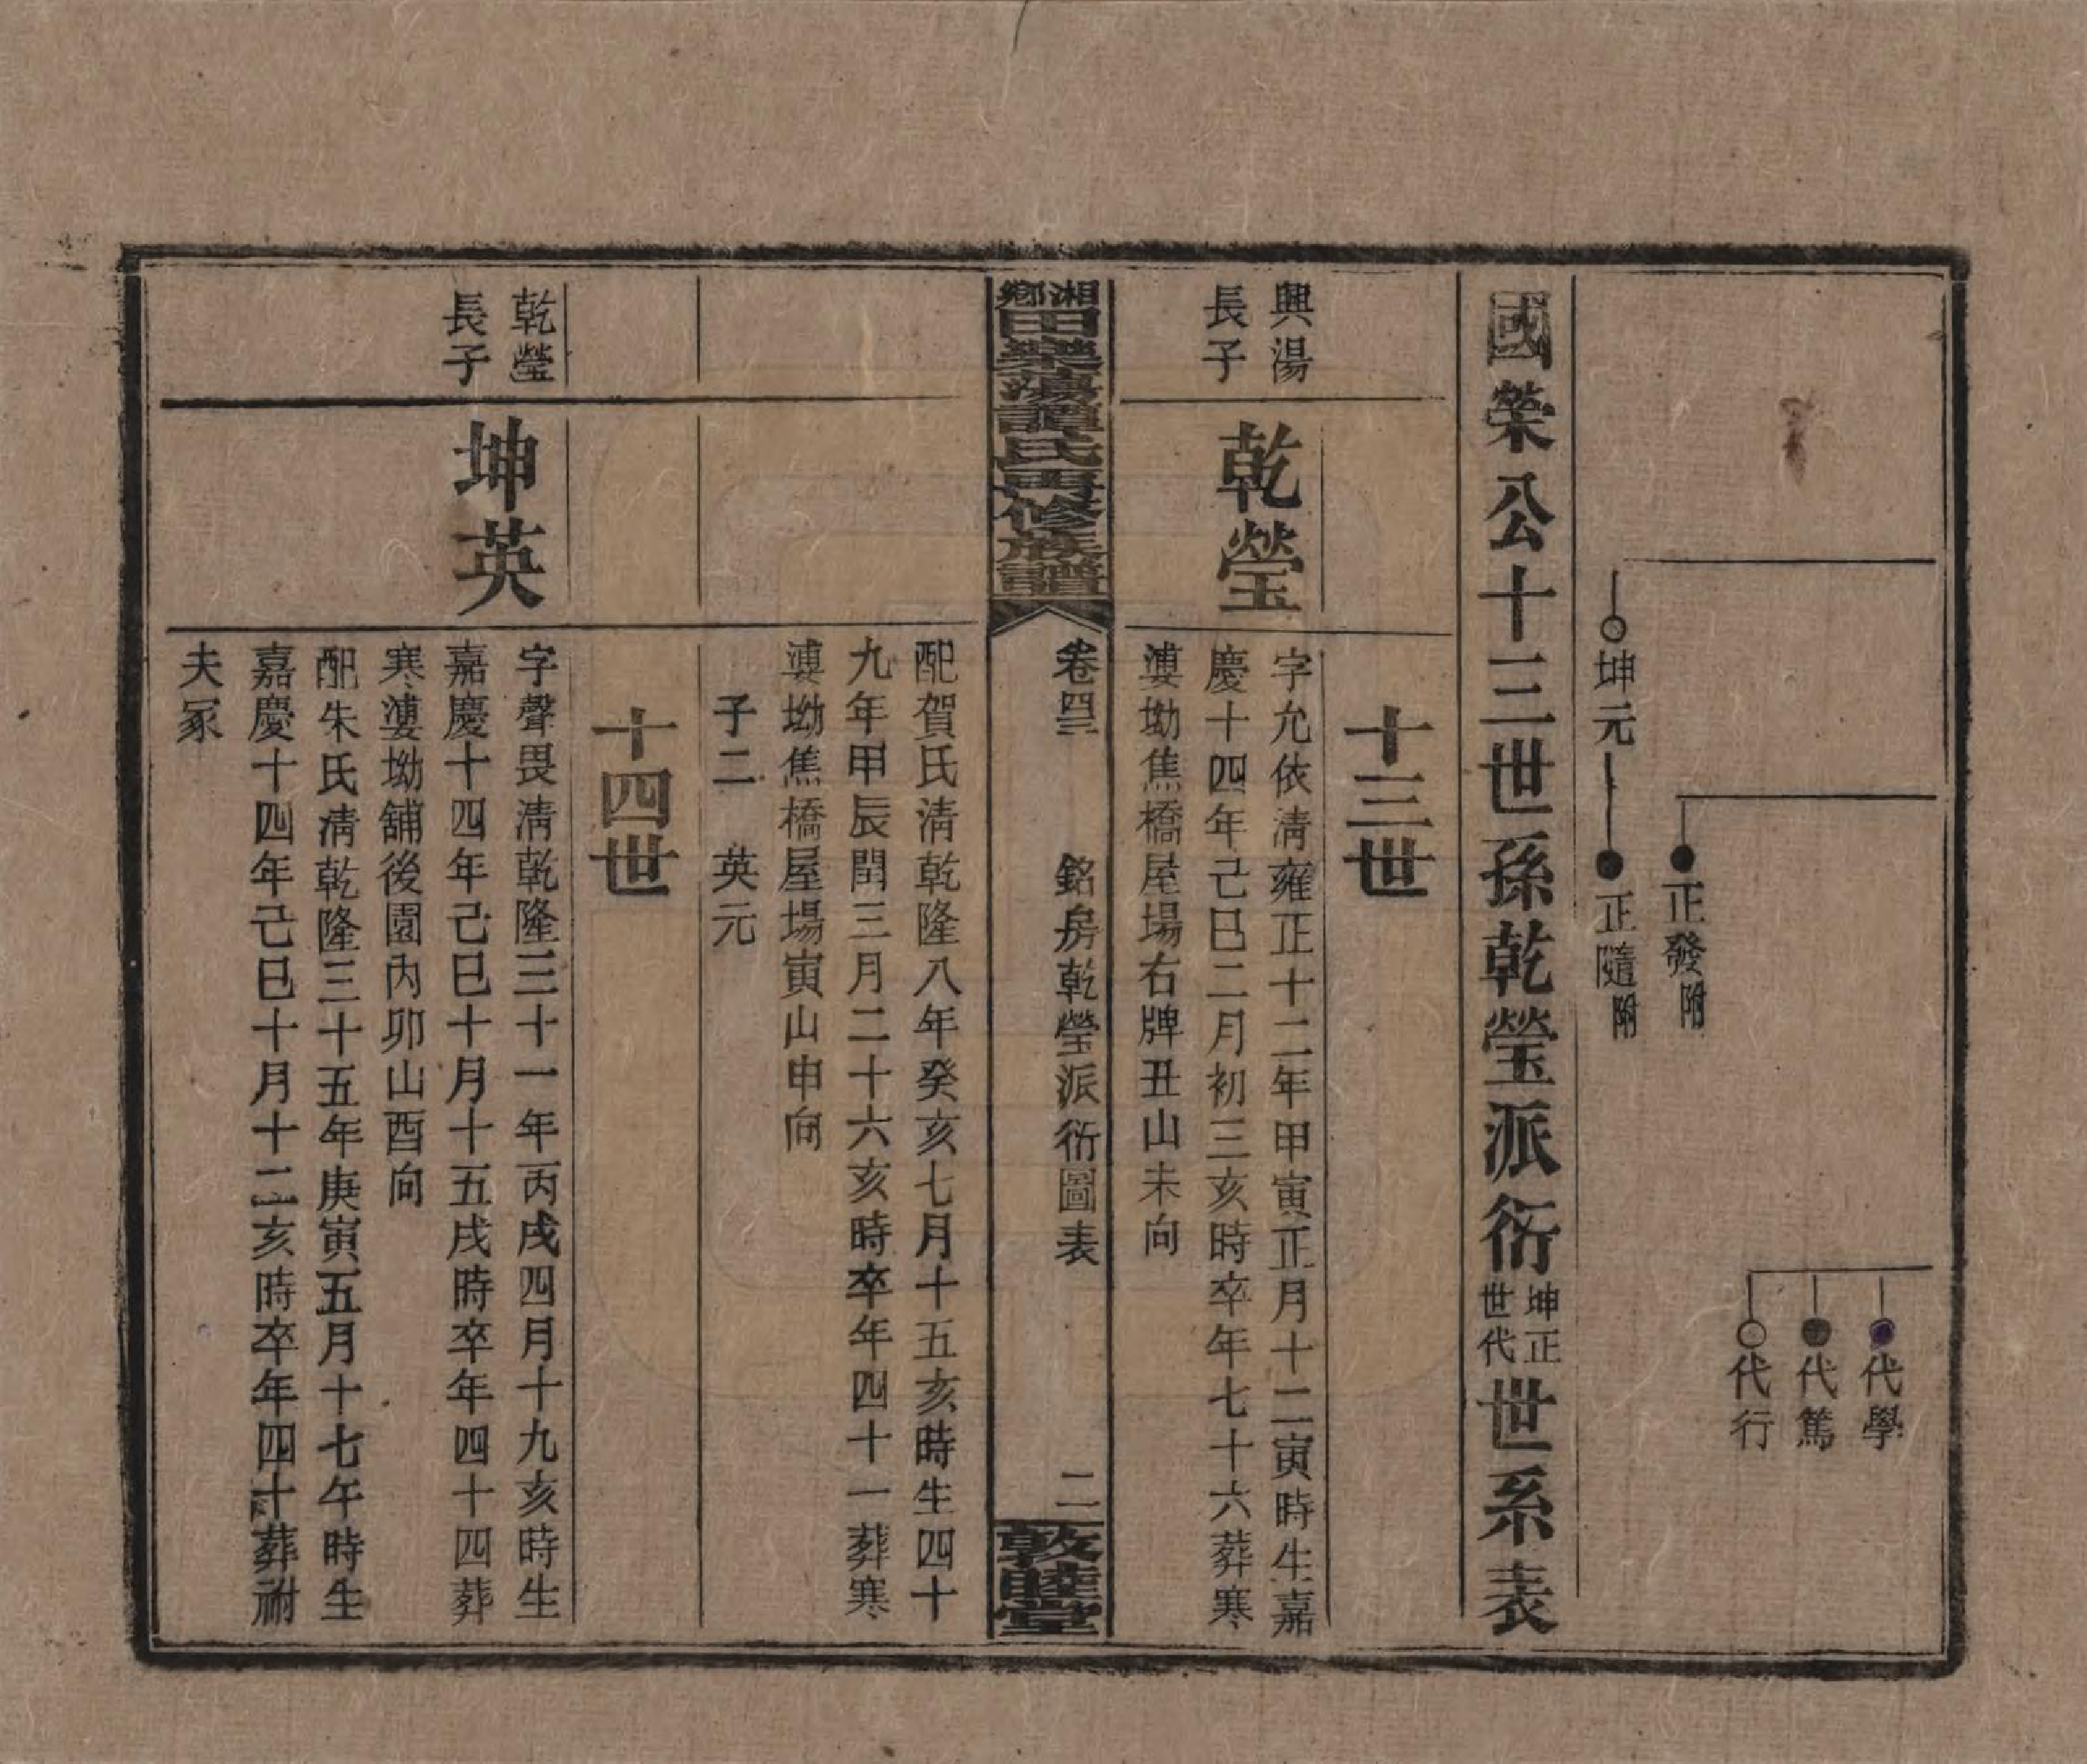 代學
代篤
代行
正發附
坤元
正隨附
國榮公十三世孫乾瑩派衍坤正世代世系表
十三世
興湯
長子
乾瑩
字允依淸雍正十二年甲寅正月十二寅時生嘉
慶十四年己巳二月初三亥時卒年七十六葬寒
漊坳焦橋屋場右牌丑山未向
湘鄉田樂蕩譚氏再修族譜
卷四三
銘房乾瑩派衍圖表
二
敦睦堂
配賀氏淸乾隆八年癸亥七月十五亥時生四十
九年甲辰閏三月二十六亥時卒年四十一葬寒
漊坳焦橋屋場寅山申向
子二 英元
十四世
乾瑩
長子
坤英
字聲畏淸乾隆三十一年丙戌四月十九亥時生
嘉慶十四年己巳十月十五戌時卒年四十四葬
寒漊坳舖後園內卯山酉向
配朱氏淸乾隆三十五年庚寅五月十七午時生
嘉慶十四年己巳十月十二亥時卒年四十葬祔
夫冢